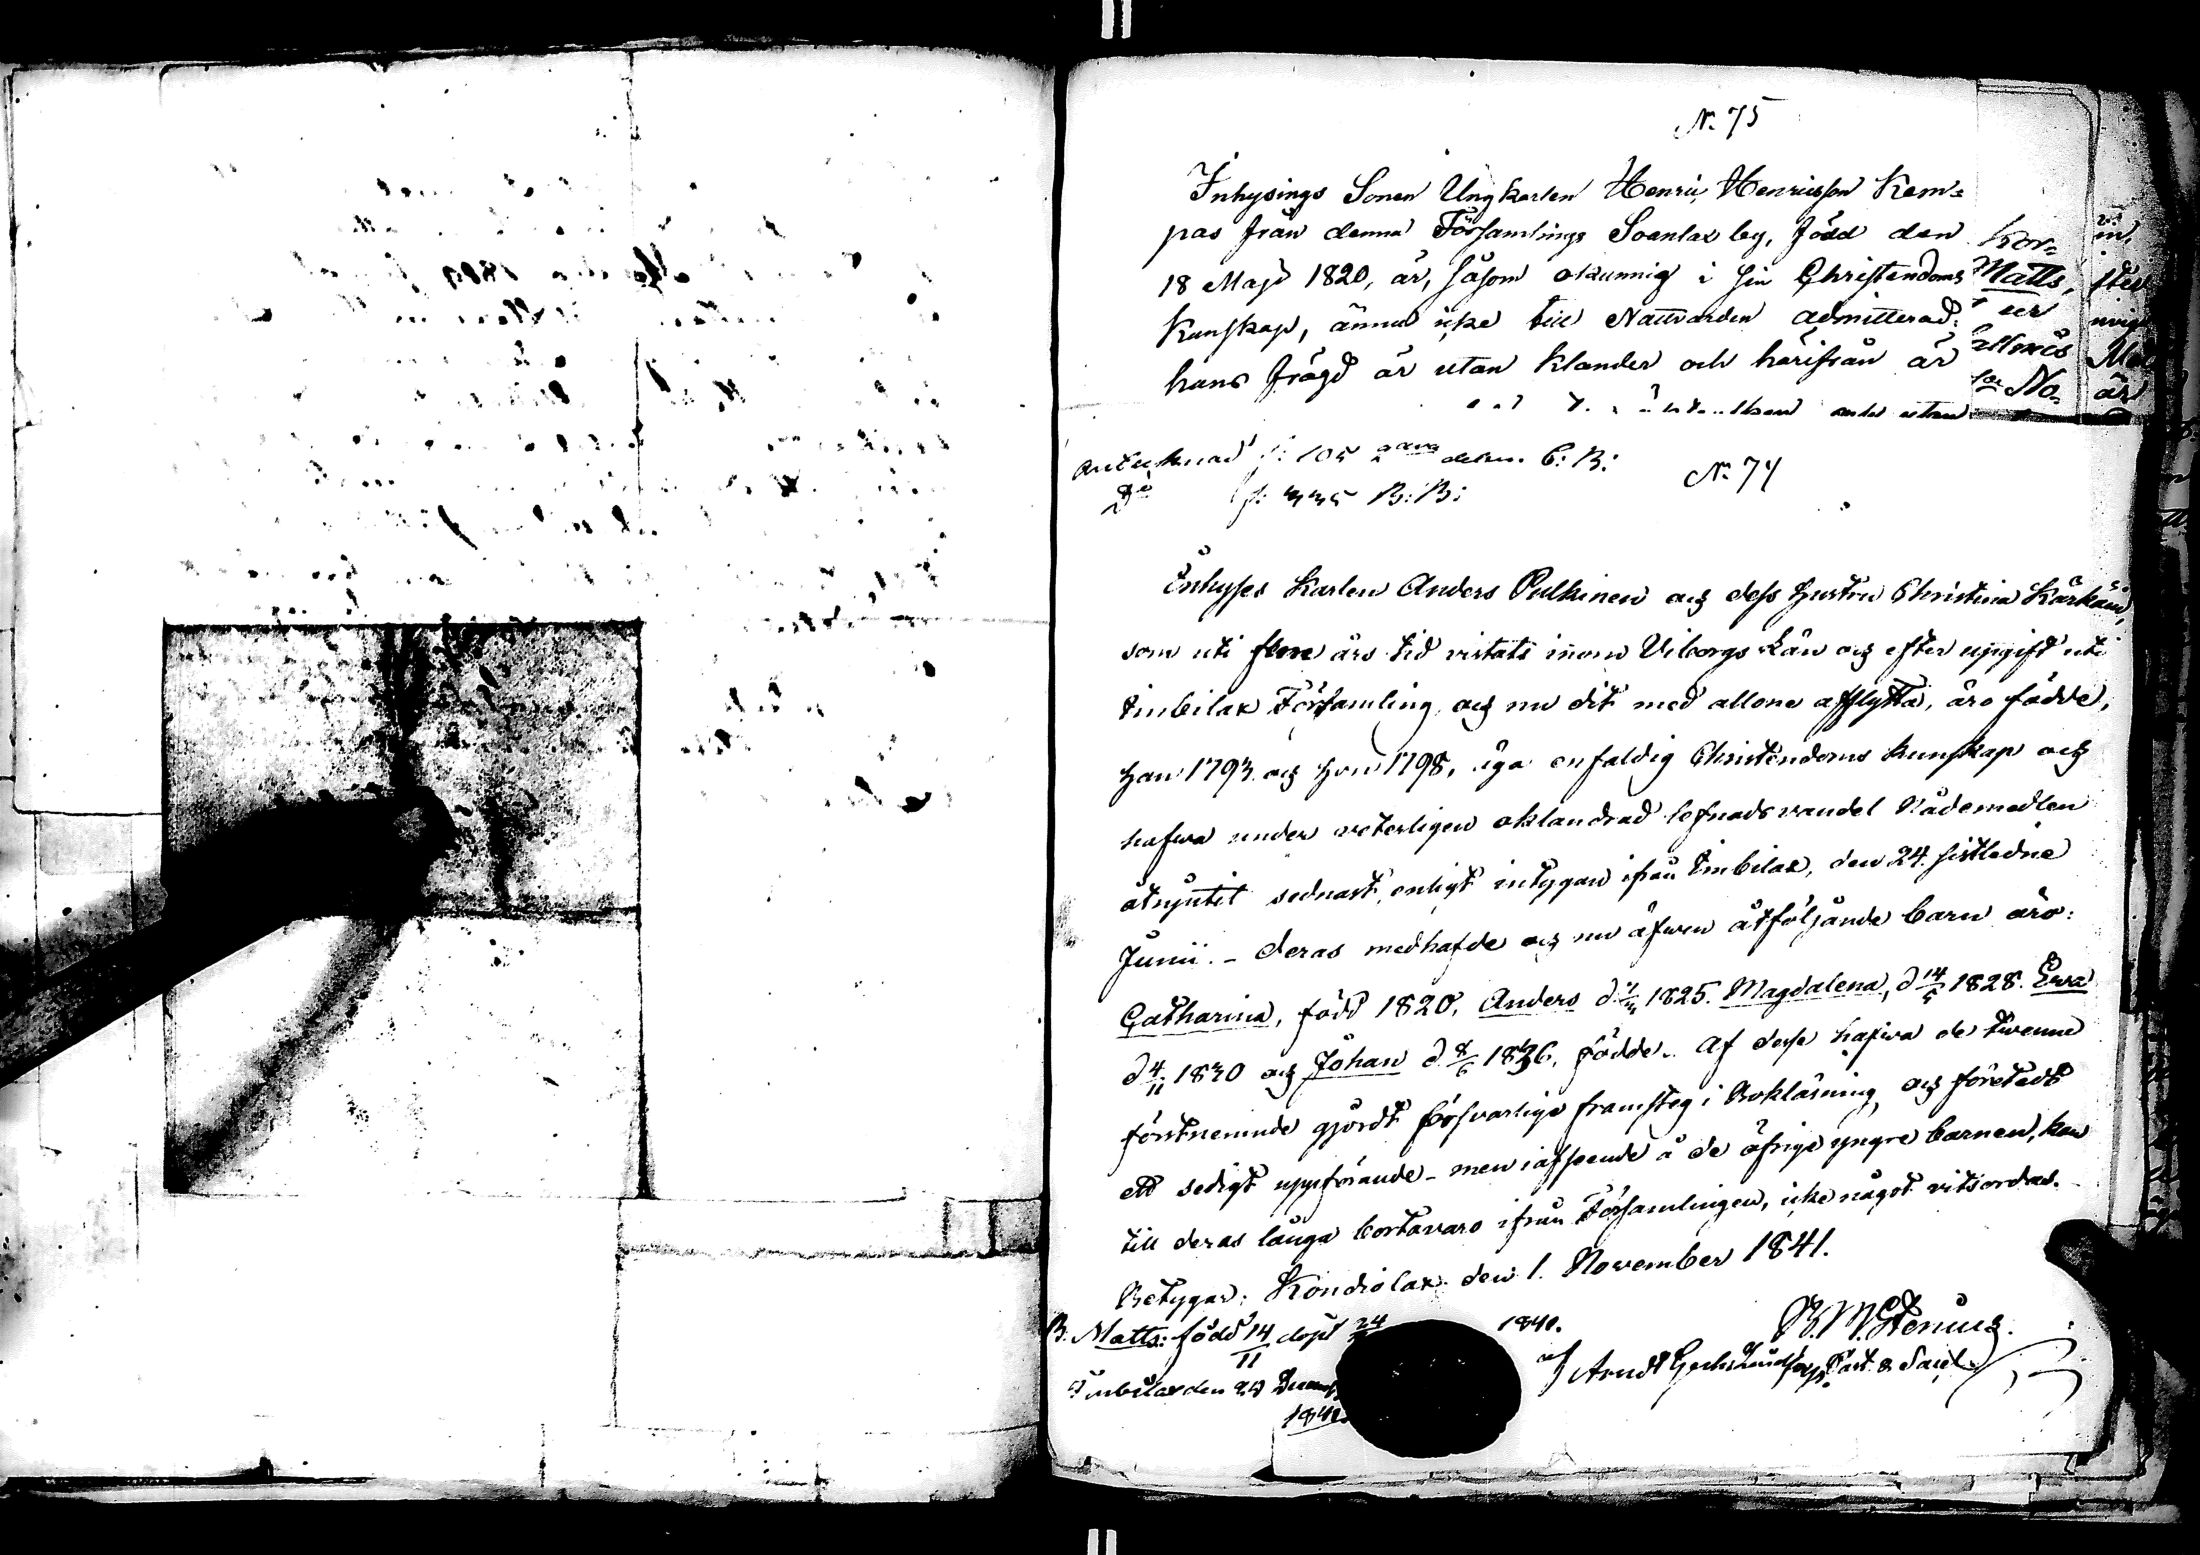 N. 75
Inhysings Sonen Ungkarlen Henric Henricsson Kem=
pas från denna Församlings Soanlax by, född den
18 Maji 1820, är, såsom okunnig i sin Christendoms
Kunskap, ännu icke till Nattvarden admitterad:
hans frägd är utan klander och härifrån är
och utan
Kor=
Matts,
No=
är
antecknad p: 105 2dra delen C: B:
Do p: 335 B: B:
N. 74
Inhyses Karlen Anders Pulkinen och dess hustru Christina Kärkäin,
som uti flere års tid vistats inom Viborgs Län och efter upgift uti
Imbilax Församling, och nu dit med allone afflytta, äro födde,
han 1793. och hon 1798, äga enfaldig Christendoms kunskap och
hafva under veterligen oklandrad lefnadsvandel Nådemedlen
åtnjutit sednast, enligt intygan ifrån Imbilax, den 24. sistledne
Junii. - Deras medhafde och nu äfven åtföljande barn äro:
Catharina, född 1820, Anders d. 1825. Magdalena, d 14/5 1828. Eva
d 4/11 1830 och Johan d. 8/6 1836, födde. Af desse hafva de tvenne
förstnemnde gjordt försvarlige framsteg i Bokläsning och företedt
ett sedigt uppförande - men i afseende å de öfrige yngre barnen, kan
till deras långa bortovaro ifrån Församlingen, icke något vitsordas.
Betygar; Kondiolax den 1. November 1841.
B. Matts: född 14/11 döpt 24
1840.
Imbilax den 29
1841.
Past. &